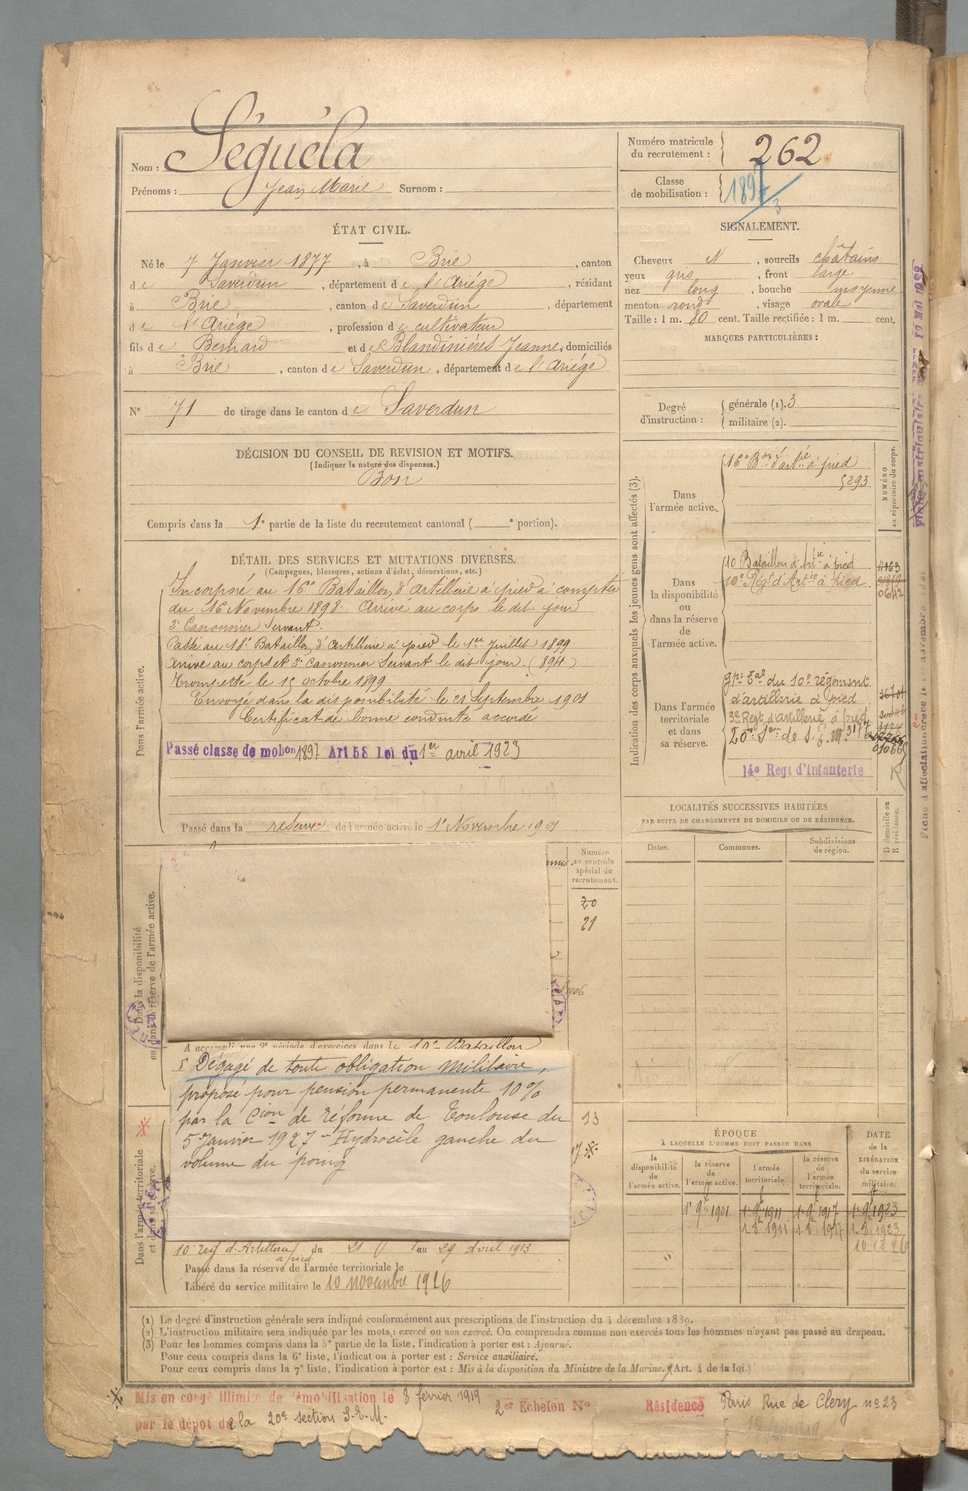 Nom : Séguéla
Prénoms : Jean Marie Surnom :
Numéro matricule du recrutement : 262
Classe de mobilisation : 1897/3
ÉTAT CIVIL.
Né le 7 Janvier 1877, à Brie, canton
de Saverdun, département de l'Ariége, résidant
à Brie, canton de Saverdun, département
de l'Ariége, profession de cultivateur
fils de Bernard et de Blandinières Jeanne, domiciliés
à Brie, canton de Saverdun, département de l'Ariége
N° 71 de tirage dans le canton de Saverdun
SIGNALEMENT.
Cheveux N, sourcils châtains
yeux gris, front large
nez long, bouche moyenne
menton rond, visage ovale
Taille : 1 m. 80 cent. Taille rectifiée : 1 m. cent.
MARQUES PARTICULIÈRES :
Degré d'instruction : générale (1). 3
militaire (2).
DÉCISION DU CONSEIL DE REVISION ET MOTIFS.
(Indiquer la nature des dispenses.)
Bon
Compris dans la 1e partie de la liste du recrutement cantonal ( e portion).
DÉTAIL DES SERVICES ET MUTATIONS DIVERSES.
(Campagnes, blessures, actions d'éclat, décorations, etc.)
Dans l'armée active.
Incorporé au 16e Bataillon d'artillerie à pied à compter
du 16 Novembre 1898. Arrivé au corps le dit jour
2e Canonnier Servant.
Passé au 18e Bataillon d'artillerie à pied le 1er Juillet 1899
Arrivé au corps et 2e canonnier Servant le dit jour. (894)
Trompette le 12 octobre 1899
Envoyé dans la disponibilité le 21 Septembre 1901
Certificat de bonne conduite accordé
Passé classe de mobon 1897 Art 58 Loi du 1er avril 1923
Passé dans la réserve de l'armée active le 1er Novembre 1901
Indication des corps auxquels les jeunes gens sont affectés (3).
NUMÉRO au répertoire du corps.
Dans l'armée active.
16e Bon d'artie à pied
5293
Dans la disponibilité ou dans la réserve de l'armée active.
10 Bataillon d'Artie à pied
10e Régt d'Artie à pied
Dans l'armée territoriale et dans sa réserve.
gpe Tal du 10e régiment
d'artillerie à pied
3e Regt d'artillerie à pied
14e Regt d'Infanterie
LOCALITÉS SUCCESSIVES HABITÉES
PAR SUITE DE CHANGEMENTS DE DOMICILE OU DE RÉSIDENCE.
D domicile ou R résidence.
Dates. Communes. Subdivisions de région.
Numéro au contrôle spécial du recrutement.
20
21
Dans la disponibilité ou dans la réserve de l'armée active.
A accompli une 2e période d'exercices dans le 10e Bataillon
Dégagé de toute obligation militaire,
proposé pour pension permanente 10%
par la Cion de réforme de Toulouse du
5 Janvier 1927 - Hydrocèle gauche du
volume du poing
Dans l'armée territoriale et dans sa réserve.
13
10e reg d'Artillerie à pied du 21 au 29 avril 1913
Passé dans la réserve de l'armée territoriale le
Libéré du service militaire le 10 novembre 1926
ÉPOQUE
À LAQUELLE L'HOMME DOIT PASSER DANS
la disponibilité de l'armée active.
la réserve de l'armée active.
l'armée territoriale.
la réserve de l'armée territoriale.
DATE de la LIBÉRATION du service militaire.
1er 9bre 1901 1-9-1911 1-9-1917 1-9-1923
(1) Le degré d'instruction générale sera indiqué conformément aux prescriptions de l'instruction du 4 décembre 1889.
(2) L'instruction militaire sera indiquée par les mots : exercé ou non exercé. On comprendra comme non exercés tous les hommes n'ayant pas passé au drapeau.
(3) Pour les hommes compris dans la 5e partie de la liste, l'indication à porter est : Ajourné.
Pour ceux compris dans la 6e liste, l'indication à porter est : Service auxiliaire.
Pour ceux compris dans la 7e liste, l'indication à porter est : Mis à la disposition du Ministre de la Marine. (Art. 4 de la loi.)
Mis en congé illimité de démobilisation le 8 février 1919 2er Echelon N°
par le dépôt de la 20e section S.E.M.
Résidence Paris Rue de Clery no 23